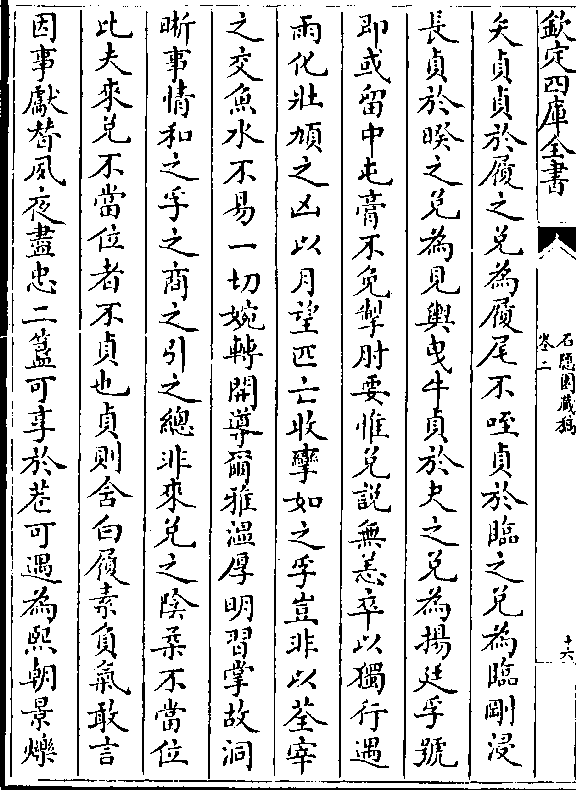 欽定四庫全書
石隱園藏稿
卷二
十六
矣貞貞於履之兌為履尾不咥貞於臨之兌為臨剛浸
長貞於暌之兌為見輿曳牛貞於夬之兌為揚廷孚號
即或留中屯膏不免掣肘要惟兌說無恙卒以獨行遇
雨化壯頄之凶以月望匹亡收攣如之孚豈非以荃宰
之交魚水不易一切婉轉開導爾雅溫厚明習掌故洞
晰事情和之孚之商之引之總非來兌之陰柔不當位
比夫來兌不當位者不貞也貞則舍白履素負氣敢言
因事獻替夙夜盡忠二簋可享於巷可遇為熙朝景爍